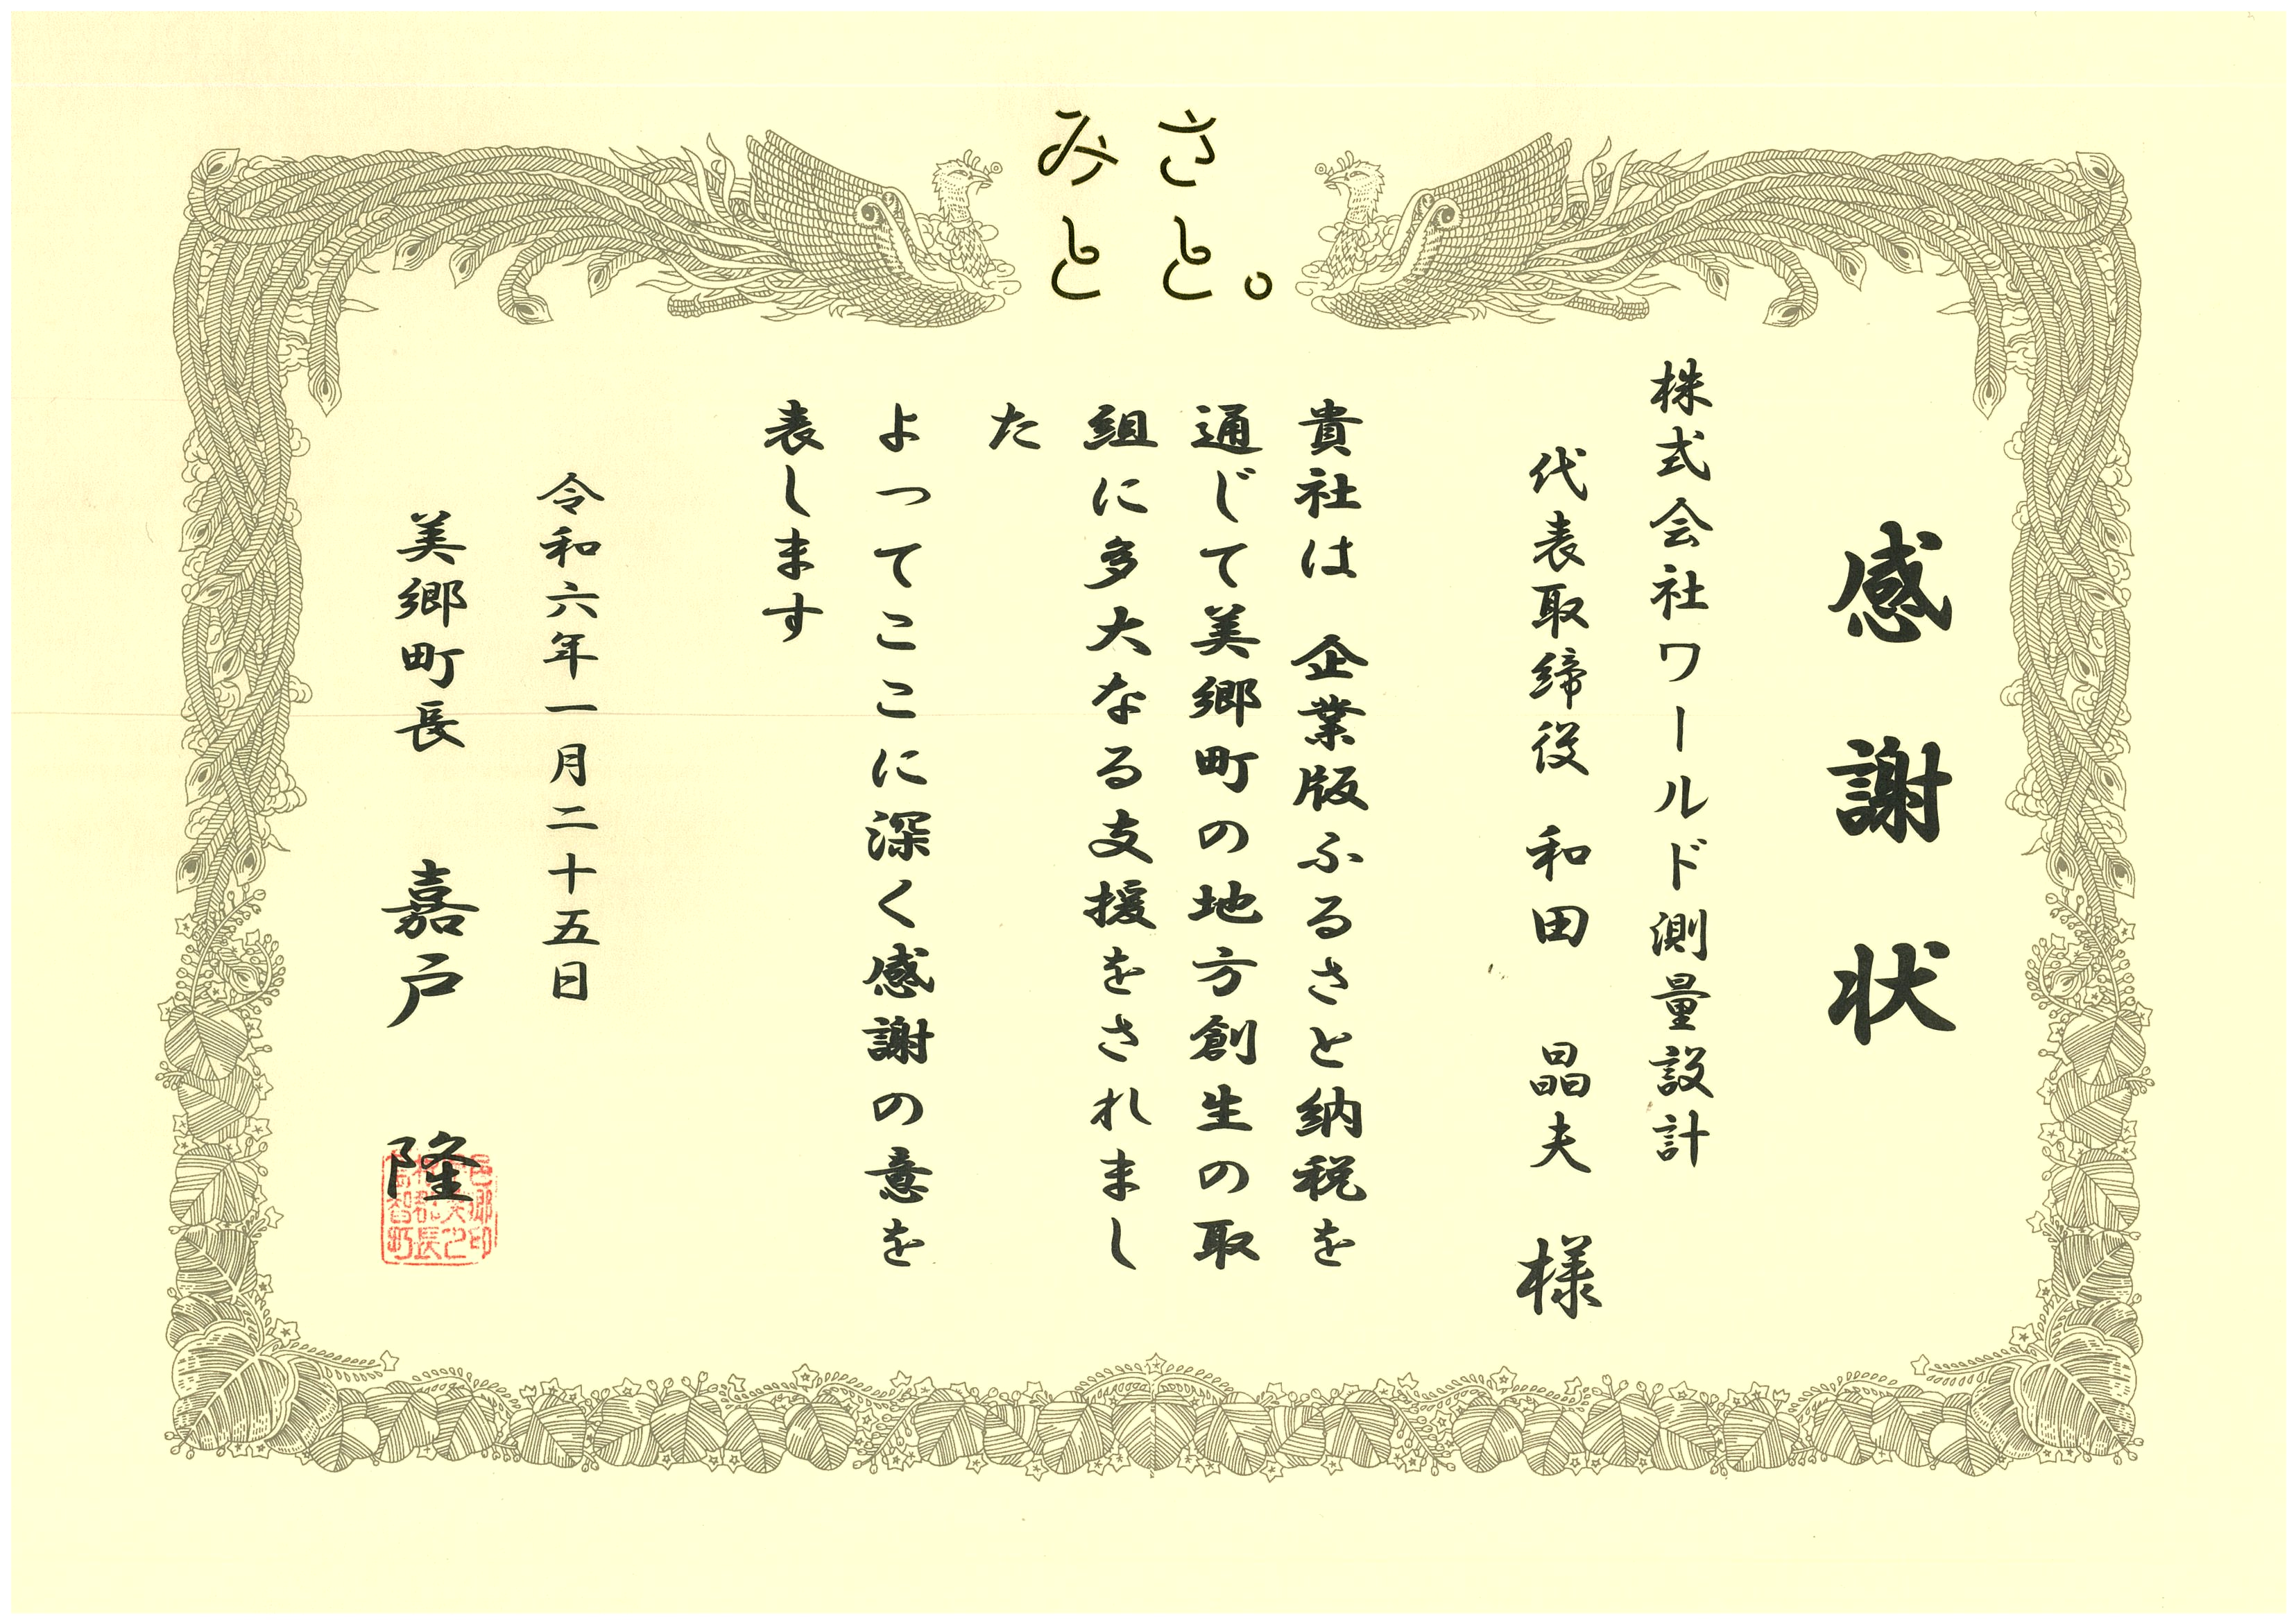 みさ
とと。
感謝状
株式会社ワールド測量設計
代表取締役 和田 晶夫 様
貴社は 企業版ふるさと納税を
通じて美郷町の地方創生の取
組に多大なる支援をされまし
た
よってここに深く感謝の意を
表します
令和六年一月二十五日
美郷町長 嘉戸 隆